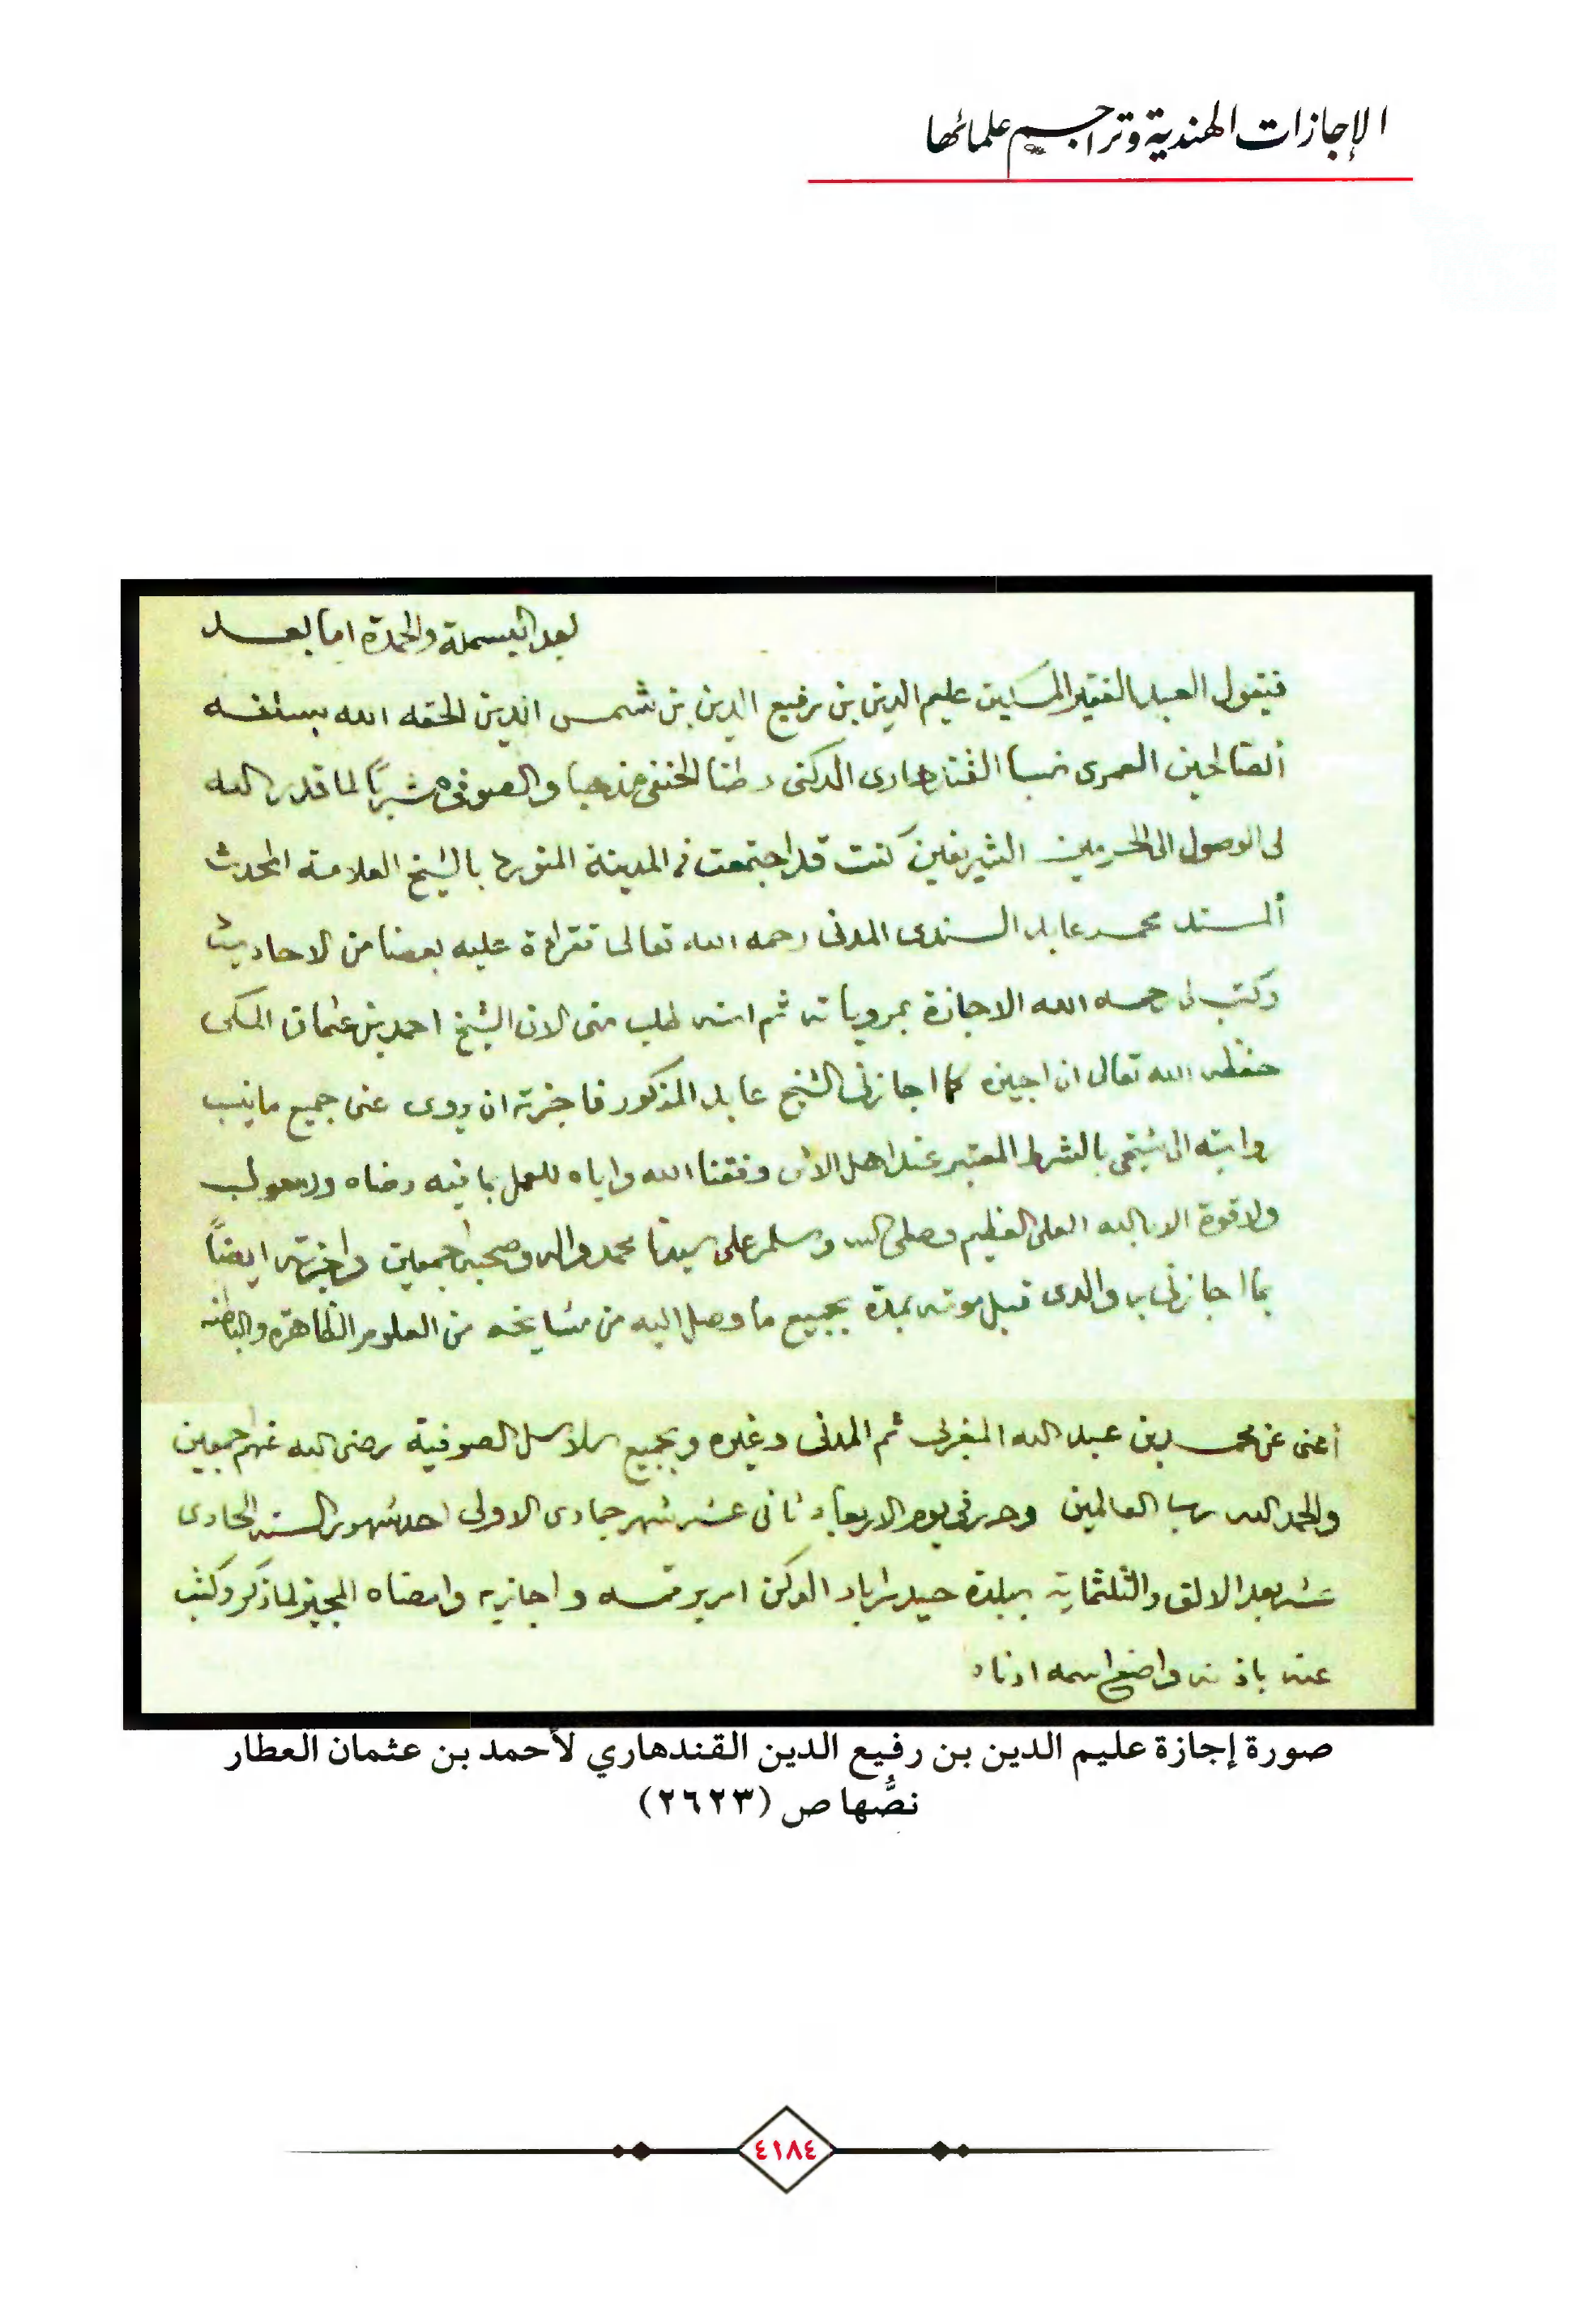 الإجازات الهندية وتراجم علمائها
بعد البسملة والحمدة اما بعد
فيقول العبد الفقير المسكين عليم الدين بن رفيع الدين بن شمس الدين الحقه الله بسلفه
الصالحين العمرى نسبا القندهارى الدكنى وطنا الحنفى مذهبا والصوفى مشربًا لما قدر الله
لى الوصول الى الحرمين الشريفين كنت قد اجتمعت فى المدينة المنورة بالشيخ العلامة المحدث
المسند محمد عابد السندى المدنى رحمه الله تعالى بقراءة عليه بعضا من الاحاديث
وكتب لى رحمه الله الاجازة بمروياته ثم انه طلب منى الان الشيخ احمد بن عثمان المكى
حفظه الله تعالى ان اجيزه كما اجازنى الشيخ عابد المذكور فاجزته ان يروى عنى جميع ما ينسب
روايته الى شيخى بالشرط المعتبر عند اهل الاثر وفقنا الله واياه للعمل بما فيه رضاه ولا حول
ولا قوة الا بالله العلى العظيم وصلى الله وسلم على سيدنا محمد واله وصحبه اجمعين واجزته ايضاً
بما اجازنى به والدى قبل موته بمدة بجميع ما وصل اليه من مشايخه من العلوم الظاهرة والباطنه
أعنى عن محمد بن عبد الله المغربى ثم المدنى وغيره وبجميع سلاسل الصوفية رضى الله عنهم اجمعين
والحمد لله رب العالمين وحرر فى يوم الاربعاء ثانى عشر شهر جمادى الاولى احد شهور السنه الحادى
عشر بعد الالف والثلثماية ببلدة حيدراباد الدكن امر برقمه واجاز به وامضاه المجيز لما ذكر وكتب
عنه باذنه واضع اسمه ادناه
صورة إجازة عليم الدين بن رفيع الدين القندهاري لأحمد بن عثمان العطار
نصُّها ص (٢٦٢٣)
٤١٨٤